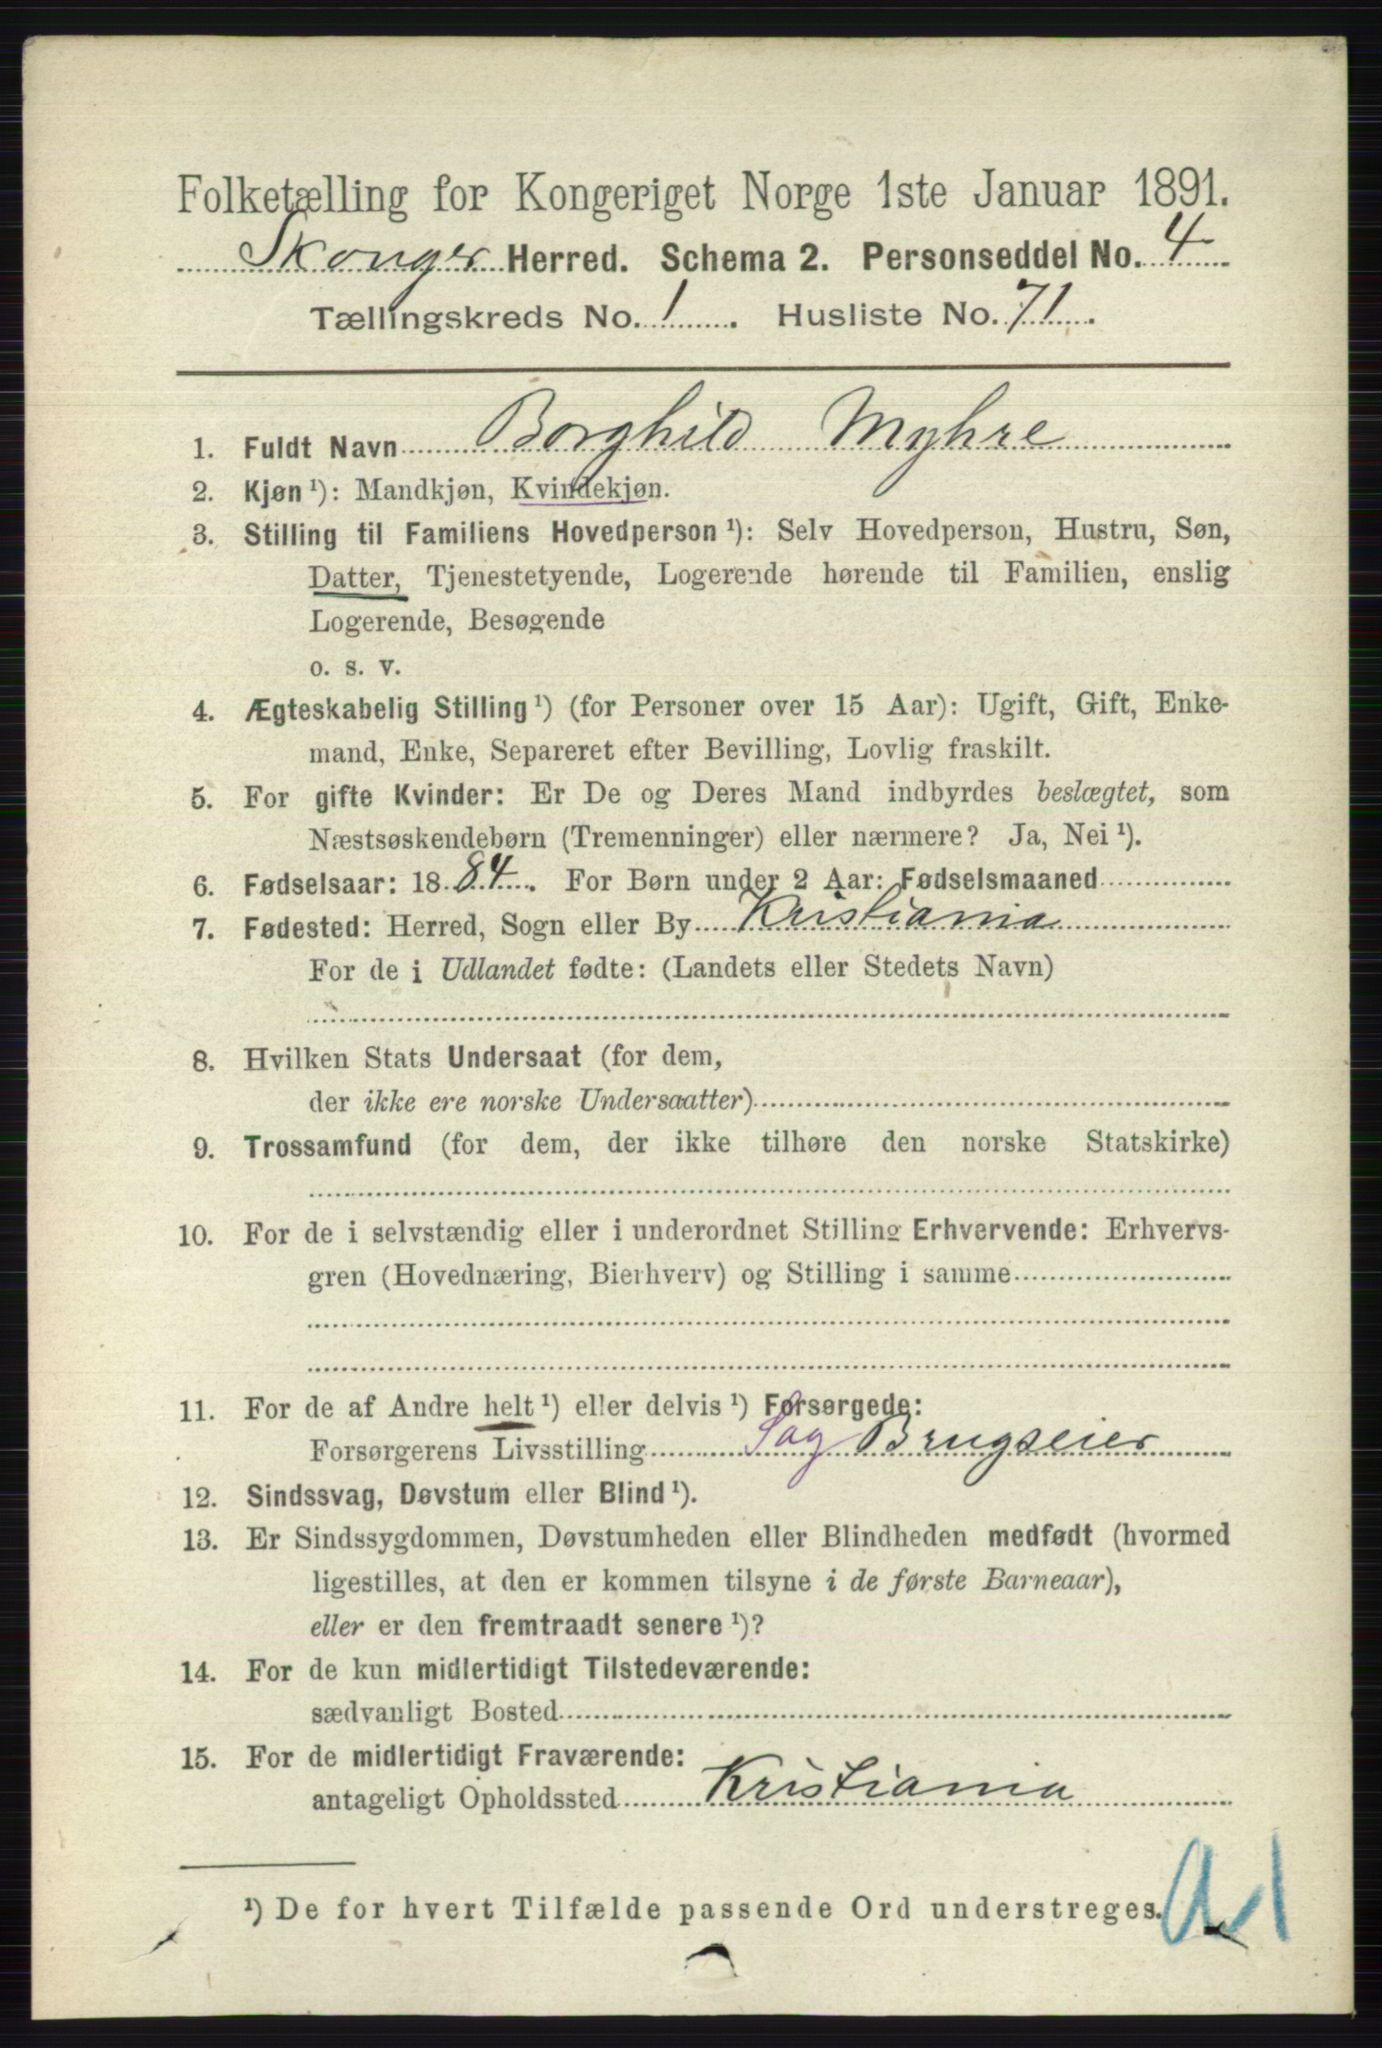 Folketælling for Kongeriget Norge 1ste Januar 1891.
Skouger Herred. Schema 2. Personseddel No. 4
Tællingskreds No. 1. Husliste No. 71.
1. Fuldt Navn Borghild Myhre
2. Kjøn ¹): Mandkjøn, Kvindekjøn.
3. Stilling til Familiens Hovedperson ¹): Selv Hovedperson, Hustru, Søn,
Datter, Tjenestetyende, Logerende hørende til Familien, enslig
Logerende, Besøgende
o. s. v.
4. Ægteskabelig Stilling ¹) (for Personer over 15 Aar): Ugift, Gift, Enke-
mand, Enke, Separeret efter Bevilling, Lovlig fraskilt.
5. For gifte Kvinder: Er De og Deres Mand indbyrdes beslægtet, som
Næstsøskendebørn (Tremenninger) eller nærmere? Ja, Nei ¹).
6. Fødselsaar: 1884. For Børn under 2 Aar: Fødselsmaaned
7. Fødested: Herred, Sogn eller By Kristiania
For de i Udlandet fødte: (Landets eller Stedets Navn)
8. Hvilken Stats Undersaat (for dem,
der ikke ere norske Undersaatter)
9. Trossamfund (for dem, der ikke tilhøre den norske Statskirke)
10. For de i selvstændig eller i underordnet Stilling Erhvervende: Erhvervs-
gren (Hovednæring, Bierhverv) og Stilling i samme
11. For de af Andre helt ¹) eller delvis ¹) Forsørgede:
Forsørgerens Livsstilling Sag Brugseier
12. Sindssvag, Døvstum eller Blind ¹).
13. Er Sindssygdommen, Døvstumheden eller Blindheden medfødt (hvormed
ligestilles, at den er kommen tilsyne i de første Barneaar),
eller er den fremtraadt senere ¹)?
14. For de kun midlertidigt Tilstedeværende:
sædvanligt Bosted
15. For de midlertidigt Fraværende:
antageligt Opholdssted Kristiania
¹) De for hvert Tilfælde passende Ord understreges.